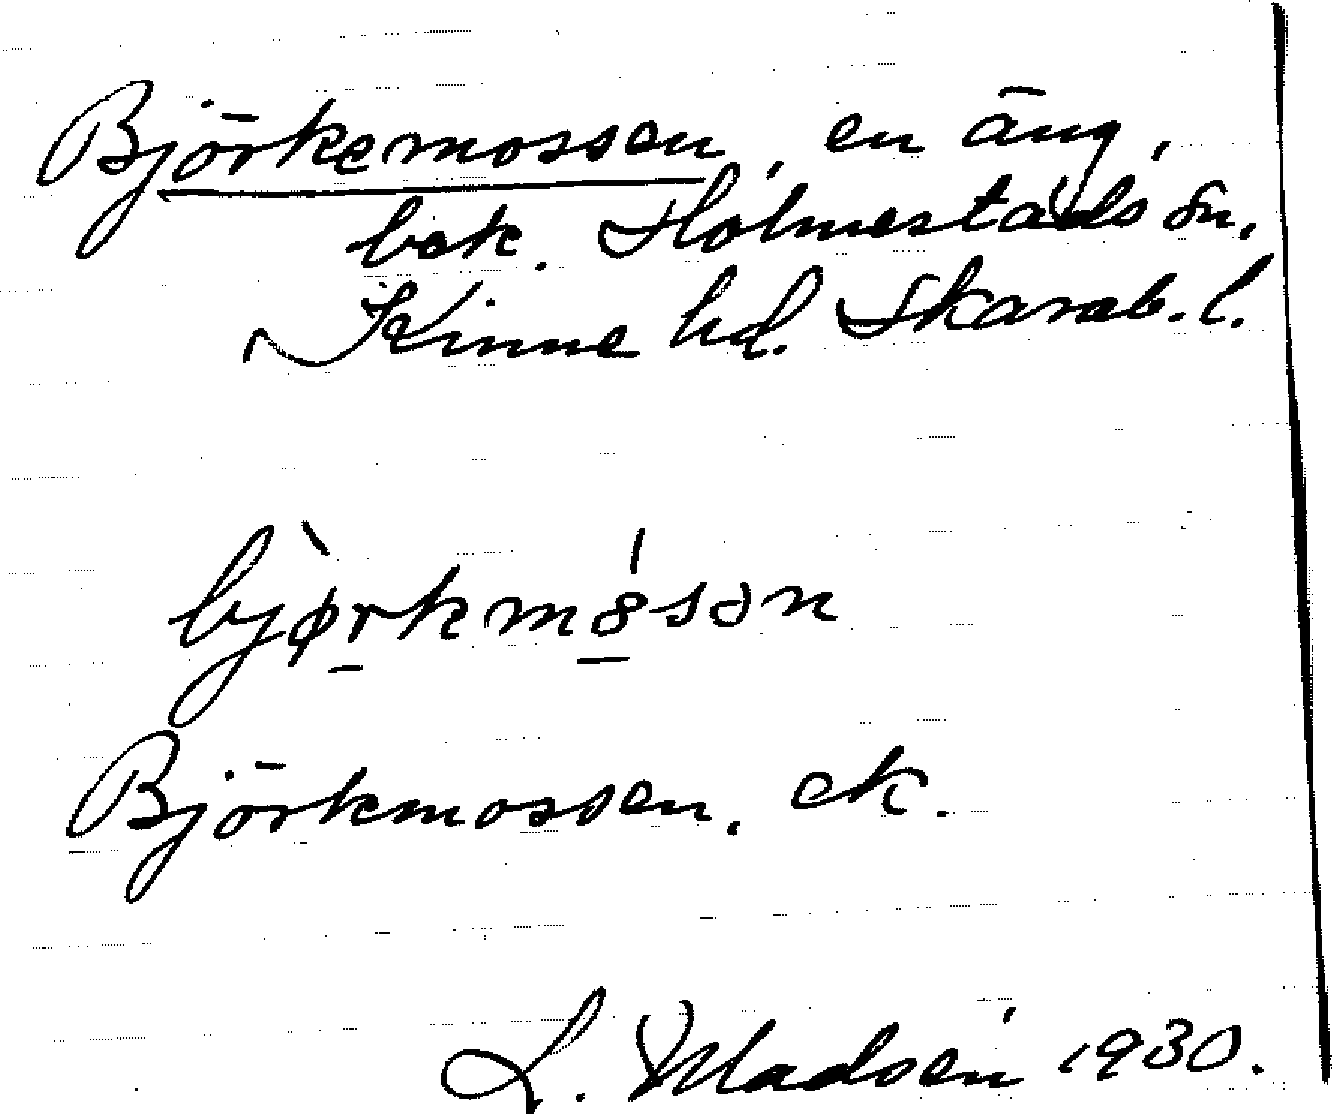 Björkemossen, en äng,
bek. Holmestads sn,
Kinne hd. Skarab. l.
bjø̀rkmósən
Björkmossen, ek.
L. Madsén 1930.